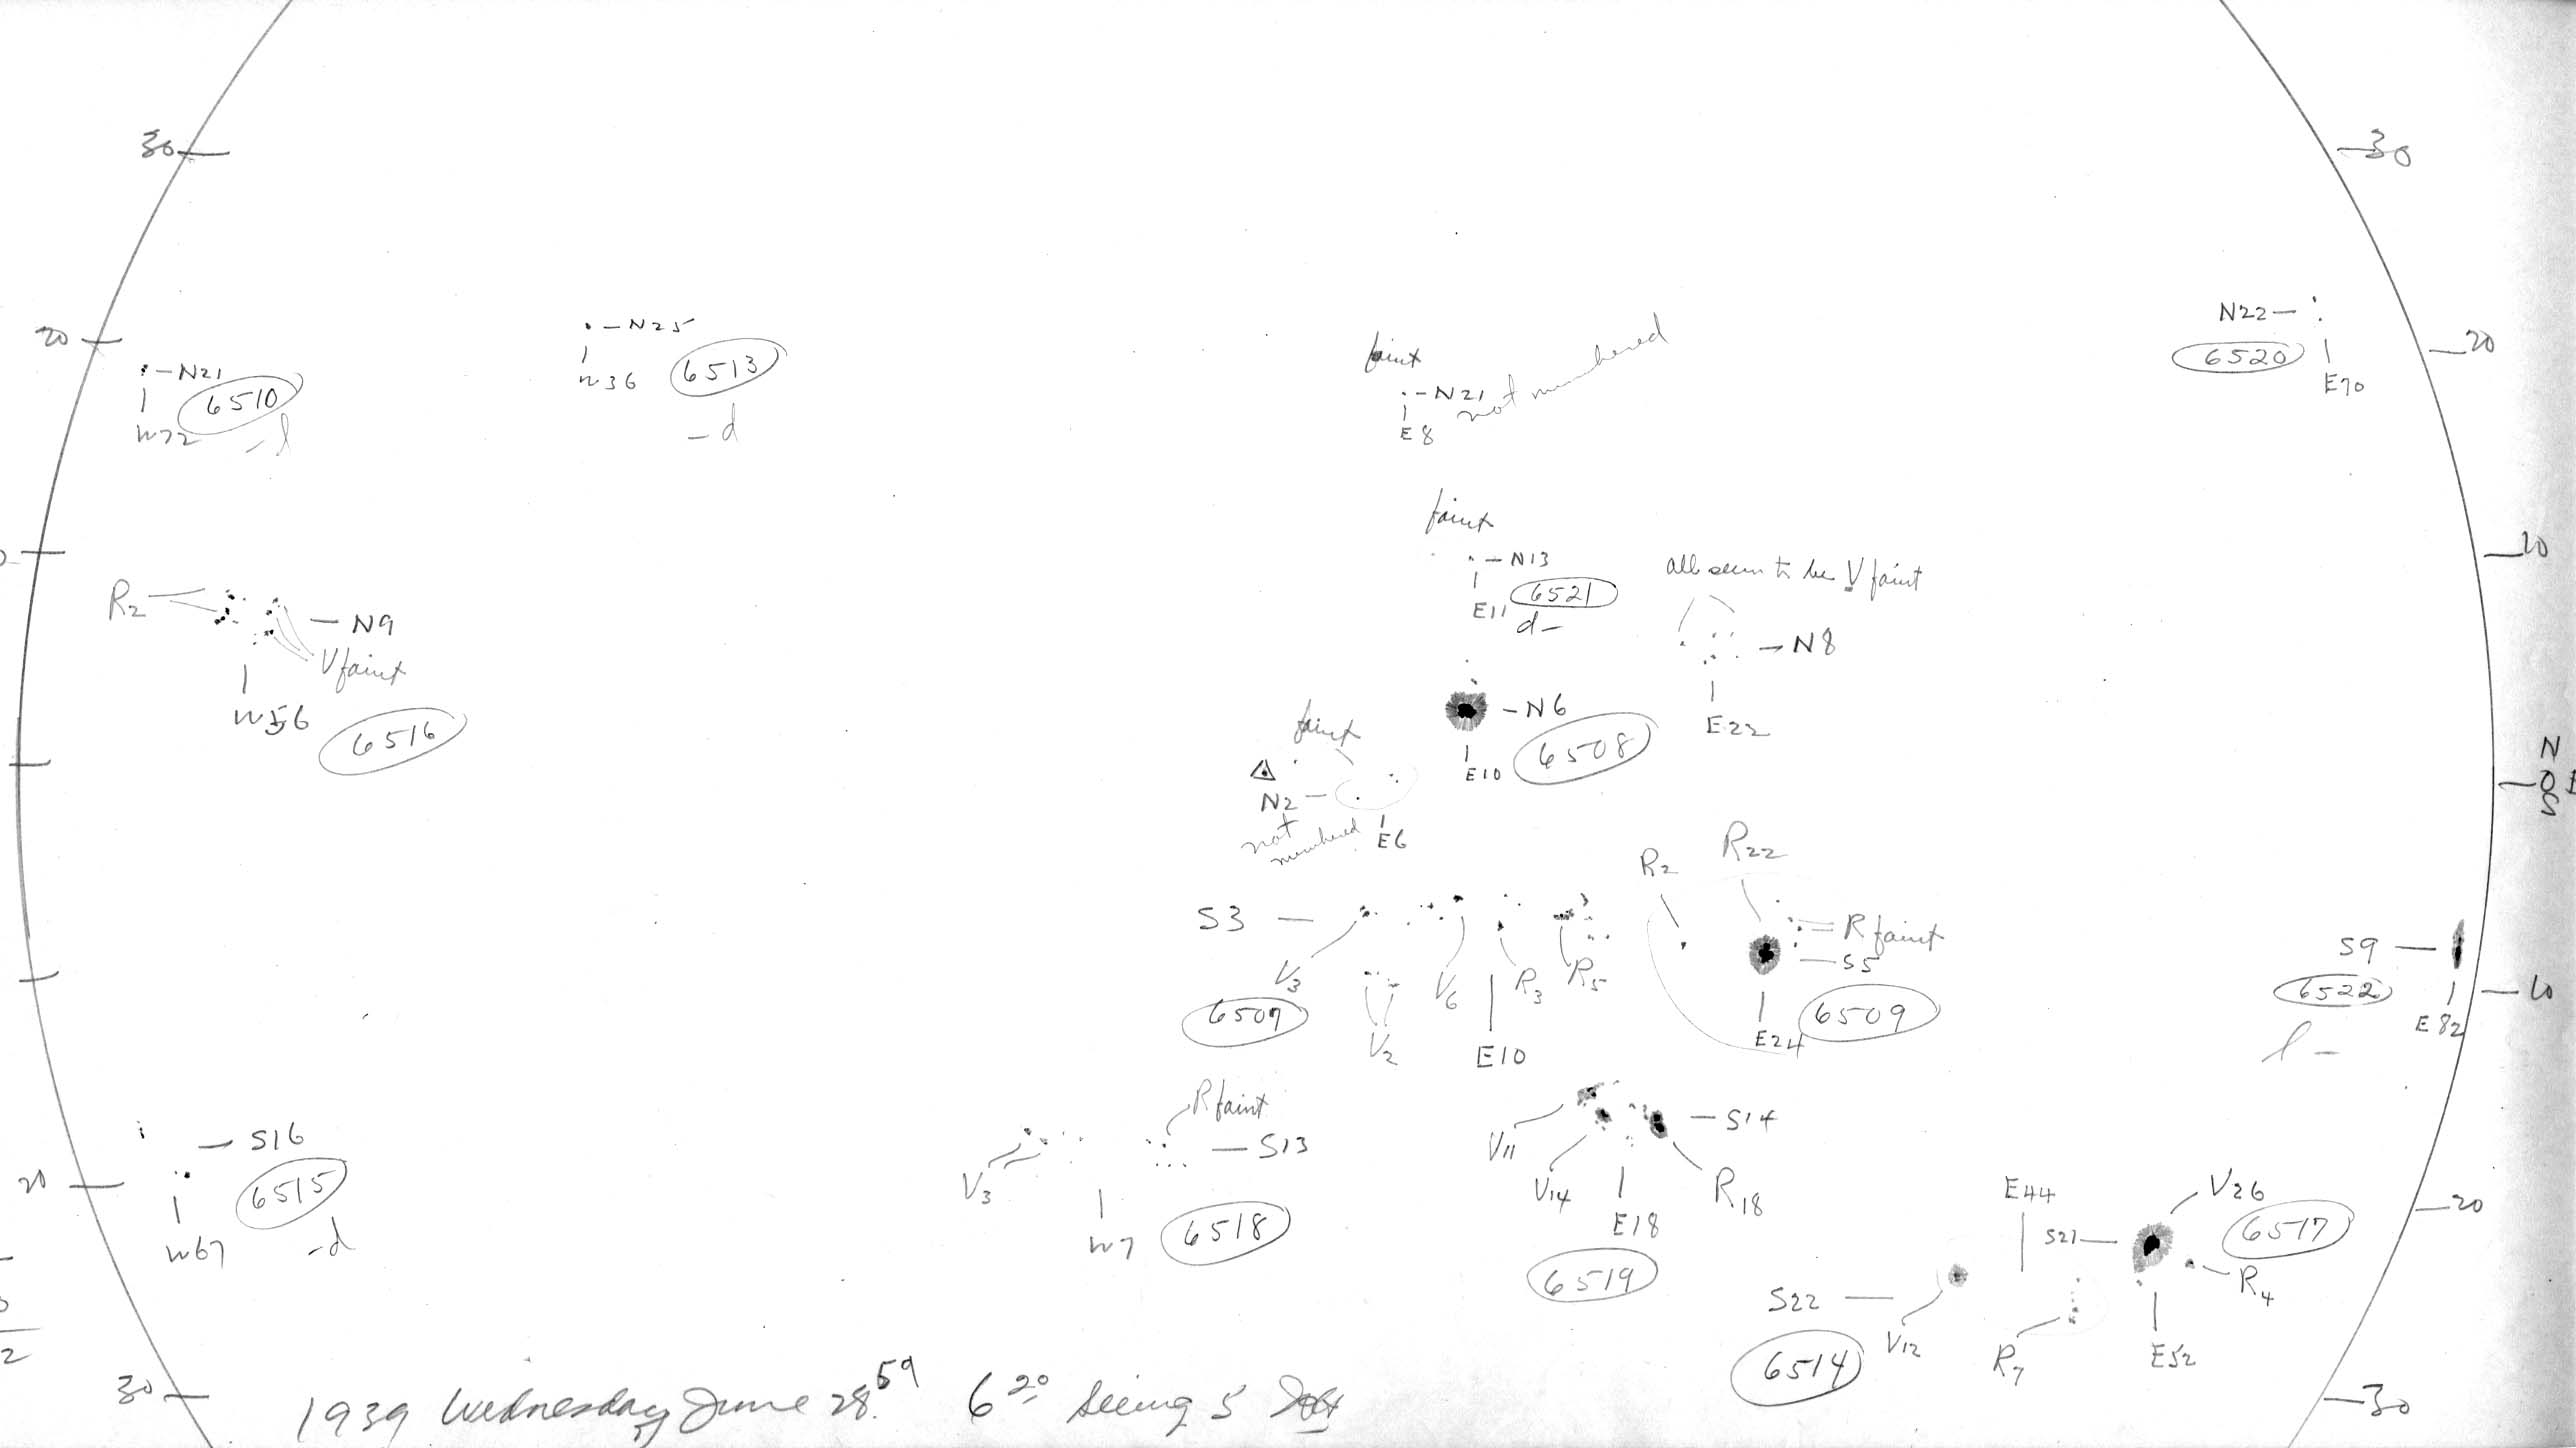 30
30
20
N21
6510
W72
-l
N25
W36
6513
-d
faint
N21
E8
not numbered
N22
6520
E70
20
faint
N13
E11
6521
d-
10
all seem to be V faint
N8
E22
R2
N9
V faint
W56
6516
N6
E10
6508
faint
N2
not numbered
E6
N
0
S
S3
V3
V2
V6
R3
R5
6507
E10
R2
R22
R faint
S5
E24
6509
S9
6522
E82
l-
10
S16
20
6515
W67
-d
R faint
S13
V3
W7
6518
V11
V14
S14
R18
E18
6519
E44
S22
V12
6514
R7
S21
V26
6517
R4
E52
20
30
30
2
1939 Wednesday June 28.59 6 20 Seeing 5